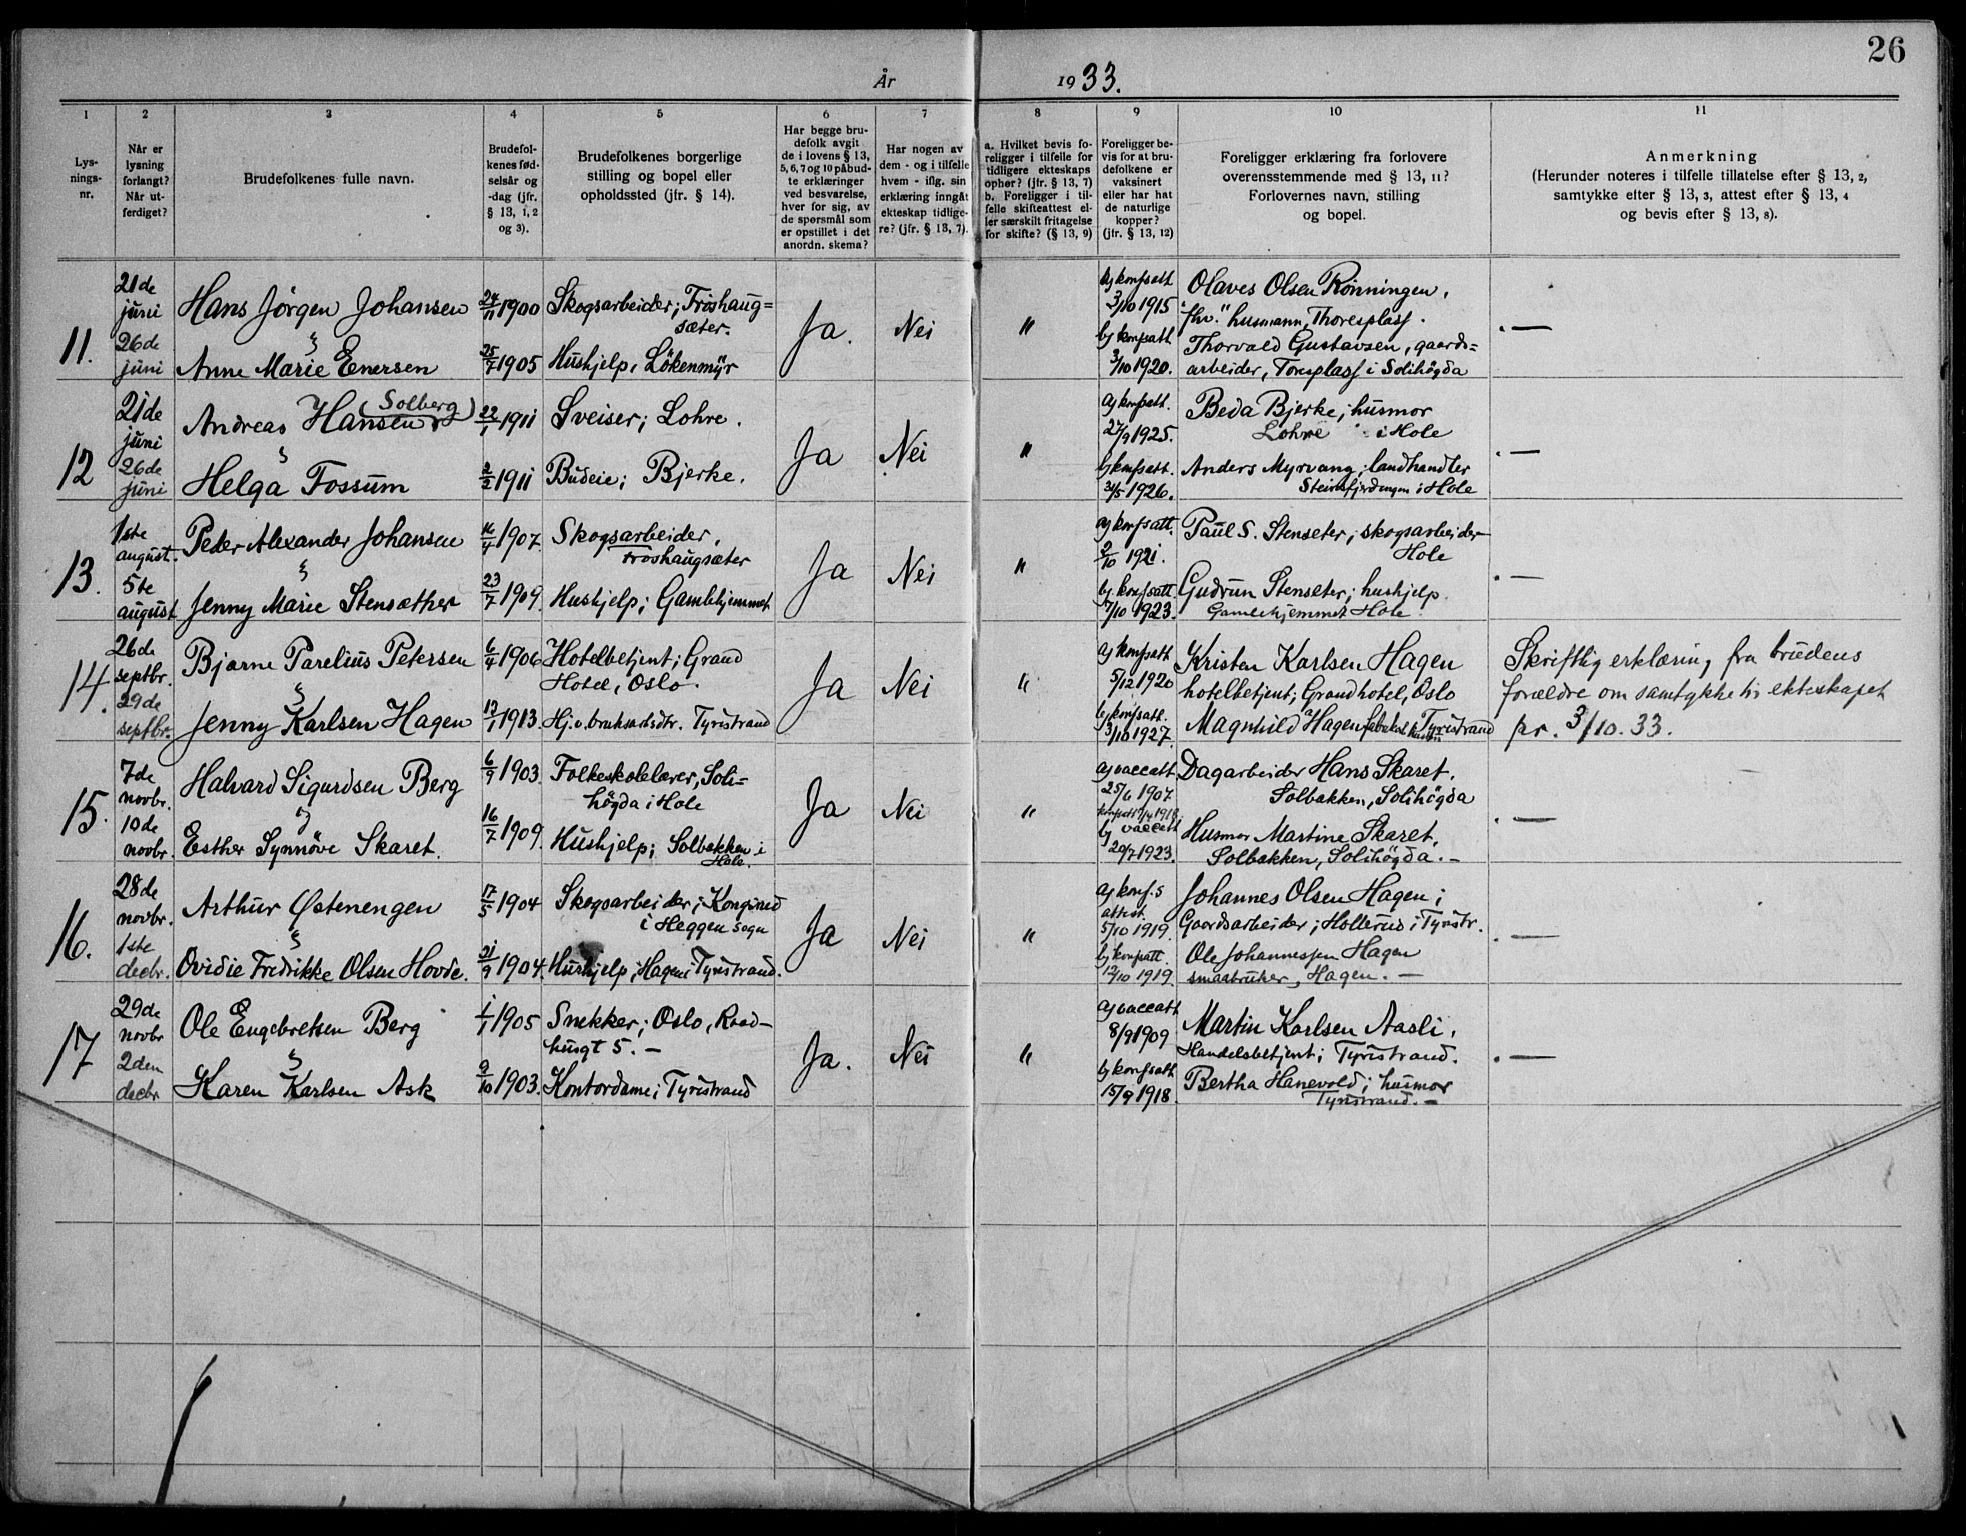 26
År 1933.
1 2 3 4 5 6 7 8 9 10 11
Lys-
nings-
nr.
Når er
lysning
forlangt?
Når ut-
ferdiget?
Brudefolkenes fulle navn.
Brudefol-
kenes fød-
selsår og
-dag (jfr.
§ 13, 1, 2
og 3).
Brudefolkenes borgerlige
stilling og bopel eller
opholdssted (jfr. § 14).
Har begge bru-
defolk avgit
de i lovens § 13,
5, 6, 7 og 10 påbud-
te erklæringer
ved besvarelse,
hver for sig, av
de spørsmål som
er opstillet i det
anordn. skema?
Har nogen av
dem - og i tilfelle
hvem - iflg. sin
erklæring inngåt
ekteskap tidlige-
re? (jfr. § 13, 7).
a. Hvilket bevis fo-
religger i tilfelle for
tidligere ekteskaps
ophør? (jfr. § 13, 7)
b. Foreligger i til-
felle skifteattest el-
ler særskilt fritagelse
for skifte? (§ 13, 9)
Foreligger be-
vis for at bru-
defolkene er
vaksinert
eller har hat
de naturlige
kopper?
(jfr. § 13, 12)
Foreligger erklæring fra forlovere
overensstemmende med § 13, 11?
Forlovernes navn, stilling
og bopel.
Anmerkning
(Herunder noteres i tilfelle tillatelse efter § 13, 2,
samtykke efter § 13, 3, attest efter § 13, 4
og bevis efter § 13, 8).
11.
21de
juni
26de
juni
Hans Jörgen Johansen
Anne Marie Enersen
24/11 1900
25/7 1905
Skogsarbeider; Fröshaug=
sæter.
Hushjelp, Lökenmyr
Ja.
Nei
"
a) konfsatt
3/10 1915
b) konfsatt
3/10 1920.
Olaves Olsen Rönningen,
"fhv." husmann, Thoresplass.
Thorvald Gustavsen, gaards=
arbeider, Toresplass i Solihögda
. —
12
21de
juni
26de
juni
Andreas Hansen (Solberg)
Helga Fossum
22/1 1911
2/2 1911
Sveiser; Lohre.
Budeie; Bjerke.
Ja
Nei
"
a) konfsatt.
27/9 1925.
b) konfsatt.
3/5 1926.
Beda Bjerke; husmor
Lohre i Hole
Anders Myrvang; landhandler
Steinsfjerdingen i Hole
. —
13.
1ste
august.
5te
august
Peder Alexander Johansen
Jenny Marie Stensæther
16/4 1907.
23/7 1909.
Skogsarbeider,
Froshaugsæter
Hushjelp; Gamlehjemmet
Ja
Nei
"
a) konfsatt.
2/10 1921.
b) konfsatt.
7/10 1923.
Paul S. Stenseter; skogsarbeider
Hole
Gudrun Stenseter; hushjelp.
Gamlehjemmet Hole.
. —
14.
26de
septbr.
29de
septbr.
Bjarne Parelius Petersen
Jenny Karlsen Hagen
6/4 1906
13/1 1913.
Hotelbetjent; Grand
Hotel, Oslo.
Hj.v. bruksarbdtr. Tyristrand
Ja
Nei
"
a) konfsatt
5/12 1920
b) konfsatt.
3/10 1927.
Kristen Karlsen Hagen
hotelbetjent; Grandhotel, Oslo
Magnhild Hagen Tyristrand
Skriftlig erklæring fra brudens
forældre om samtykke til ekteskapet
pr. 3/10. 33.
15.
7de
novbr.
10de
novbr.
Halvard Sigurdsen Berg
Esther Synnöve Skaret.
6/9 1903.
16/7 1909.
Folkeskolelærer, Soli=
högda i Hole
Hushjelp; Solbakken i
Hole.
Ja
Nei
"
a) vaccatt
25/6 1907
b) vaccatt
20/7 1923.
Dagarbeider Hans Skaret.
Solbakken, Solihögda
Husmor Martine Skaret.
Solbakken, Solihögda. —
. —
16.
28de
novbr.
1ste
decbr.
Arthur Østenengen
Ovidie Fredrikke Olsen Hovde.
17/5 1904
21/9 1904.
Skogsarbeider; Kongsrud
i Heggen sogn
Hushjelp; Hagen i Tyristrand.
Ja
Nei
"
a) konf.s
attest
5/10 1919.
b) konfsatt.
12/10 1919.
Johannes Olsen Hagen;
Gaardsarbeider; Hollerud i Tyristr.
Ole Johannessen Hagen
smaabruker, Hagen. —
. —
17
29de
novbr
2den
decbr
Ole Engebretsen Berg
Karen Karlsen Ask
1/1 1905
9/10 1903.
Snekker; Oslo, Raad-
husgt 5. —
Kontordame; Tyristrand
Ja.
Nei
"
a) vaccatt
8/9 1909
b) konfsatt
15/9 1918.
Martin Karlsen Aasli,
Handelsbetjent; Tyristrand.
Bertha Hanevold; husmor
Tyristrand. —
. —